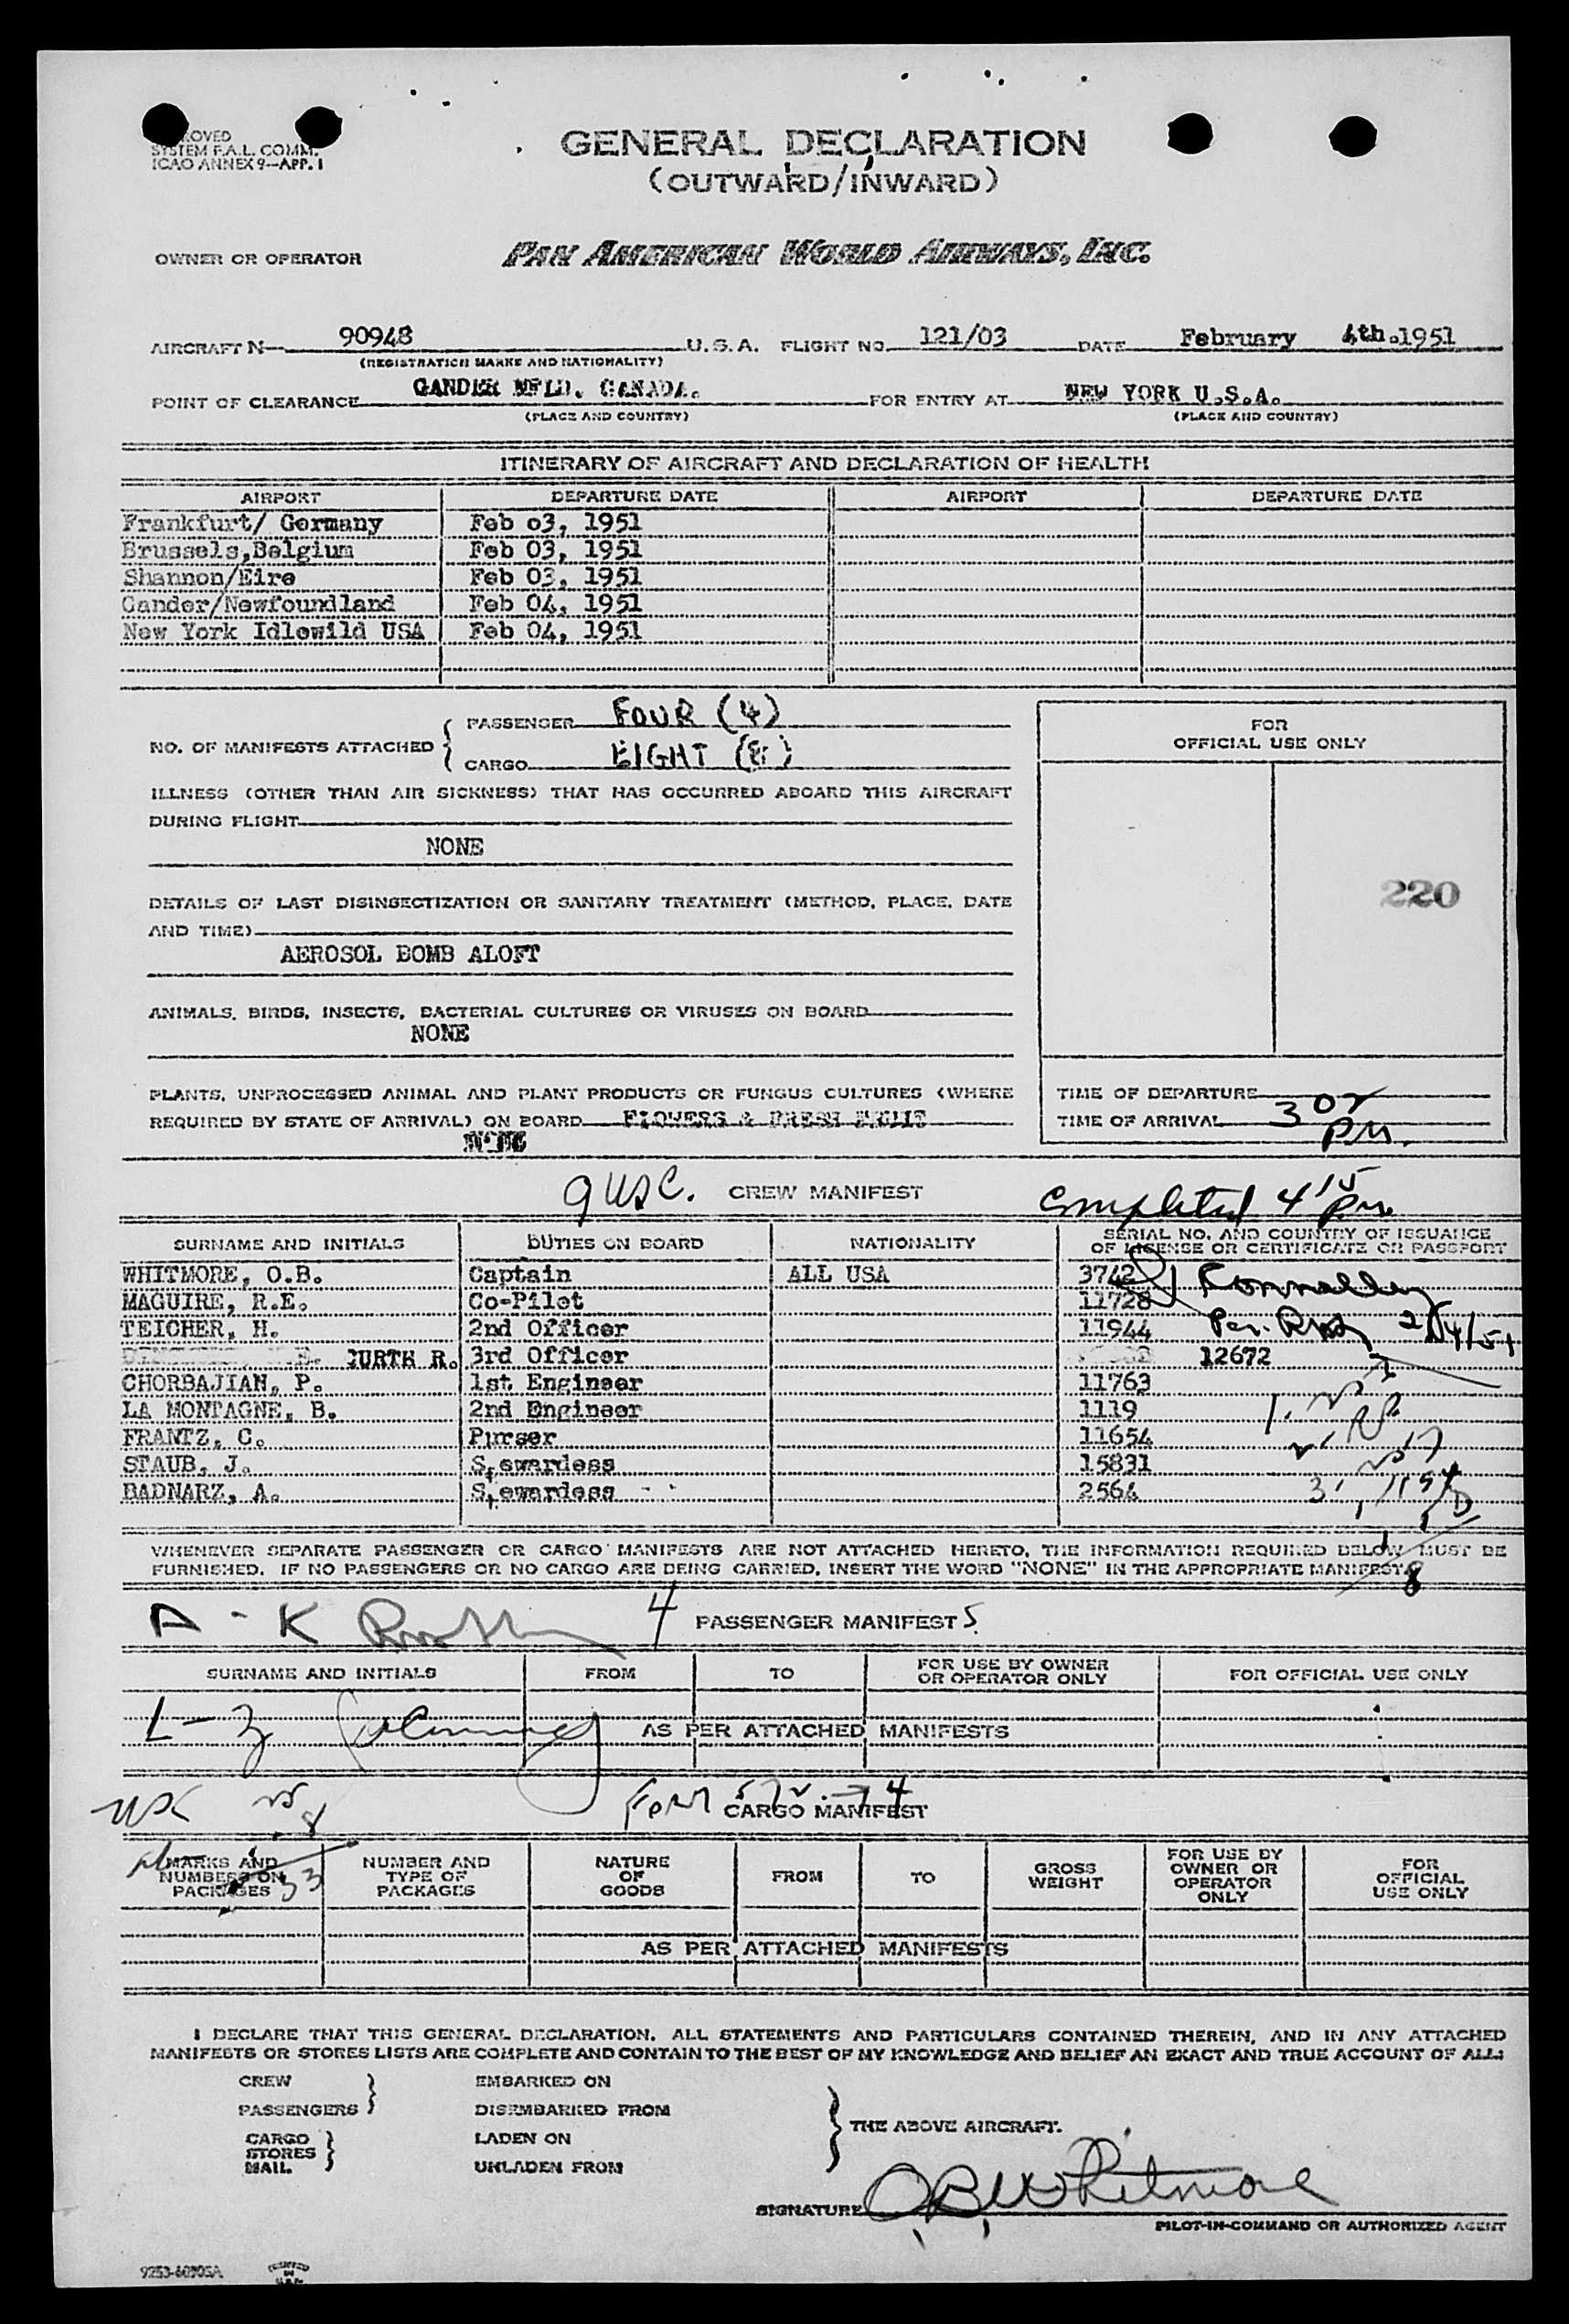 SYSTEM F.A.L. COMM.
ICAO ANNEX 9—APP. 1
GENERAL DECLARATION
(OUTWARD/INWARD)
OWNER OR OPERATOR PAN AMERICAN WORLD AIRWAYS, INC.
AIRCRAFT N— 90948 U.S.A. FLIGHT NO. 121/03 DATE February 4th.1951
(REGISTRATION MARKS AND NATIONALITY)
POINT OF CLEARANCE GANDER NFLD. CANADA. FOR ENTRY AT NEW YORK U.S.A.
(PLACE AND COUNTRY) (PLACE AND COUNTRY)
ITINERARY OF AIRCRAFT AND DECLARATION OF HEALTH
AIRPORT DEPARTURE DATE AIRPORT DEPARTURE DATE
Frankfurt/ Germany Feb o3, 1951
Brussels,Belgium Feb 03, 1951
Shannon/Eire Feb 03, 1951
Gander/Newfoundland Feb 04, 1951
New York Idlewild USA Feb 04, 1951
NO. OF MANIFESTS ATTACHED { PASSENGER FOUR (4)
CARGO EIGHT (8)
FOR
OFFICIAL USE ONLY
ILLNESS (OTHER THAN AIR SICKNESS) THAT HAS OCCURRED ABOARD THIS AIRCRAFT
DURING FLIGHT
NONE
220
DETAILS OF LAST DISINSECTIZATION OR SANITARY TREATMENT (METHOD, PLACE, DATE
AND TIME)
AEROSOL BOMB ALOFT
ANIMALS, BIRDS, INSECTS, BACTERIAL CULTURES OR VIRUSES ON BOARD
NONE
PLANTS, UNPROCESSED ANIMAL AND PLANT PRODUCTS OR FUNGUS CULTURES (WHERE
REQUIRED BY STATE OF ARRIVAL) ON BOARD FLOWERS & FRESH FRUIT
NONE
TIME OF DEPARTURE
TIME OF ARRIVAL 3 02
PM.
9 USC. CREW MANIFEST Completed 4 15 PM
SURNAME AND INITIALS DUTIES ON BOARD NATIONALITY SERIAL NO. AND COUNTRY OF ISSUANCE
OF LICENSE OR CERTIFICATE OR PASSPORT
WHITMORE, O.B. Captain ALL USA 3742
MAGUIRE, R.E. Co-Pilot 11728
TEICHER, H. 2nd Officer 11944 2/4/51
CURTH R. 3rd Officer 12672
CHORBAJIAN, P. 1st Engineer 11763
LA MONTAGNE, B. 2nd Engineer 1119
FRANTZ, C. Purser 11654
STAUB, J. Stewardess 15831
BADNARZ, A. Stewardess 2564
WHENEVER SEPARATE PASSENGER OR CARGO MANIFESTS ARE NOT ATTACHED HERETO, THE INFORMATION REQUIRED BELOW MUST BE
FURNISHED. IF NO PASSENGERS OR NO CARGO ARE BEING CARRIED, INSERT THE WORD "NONE" IN THE APPROPRIATE MANIFEST.
A - K 4 PASSENGER MANIFEST S
SURNAME AND INITIALS FROM TO FOR USE BY OWNER
OR OPERATOR ONLY FOR OFFICIAL USE ONLY
L - Z
AS PER ATTACHED MANIFESTS
CARGO MANIFEST
MARKS AND
NUMBERS ON
PACKAGES
NUMBER AND
TYPE OF
PACKAGES
NATURE
OF
GOODS
FROM
TO
GROSS
WEIGHT
FOR USE BY
OWNER OR
OPERATOR
ONLY
FOR
OFFICIAL
USE ONLY
AS PER ATTACHED MANIFESTS
I DECLARE THAT THIS GENERAL DECLARATION, ALL STATEMENTS AND PARTICULARS CONTAINED THEREIN, AND IN ANY ATTACHED
MANIFESTS OR STORES LISTS ARE COMPLETE AND CONTAIN TO THE BEST OF MY KNOWLEDGE AND BELIEF AN EXACT AND TRUE ACCOUNT OF ALL:
CREW EMBARKED ON
PASSENGERS DISEMBARKED FROM
THE ABOVE AIRCRAFT.
CARGO LADEN ON
STORES
MAIL UNLADEN FROM
SIGNATURE OB Whitmore
PILOT-IN-COMMAND OR AUTHORIZED AGENT